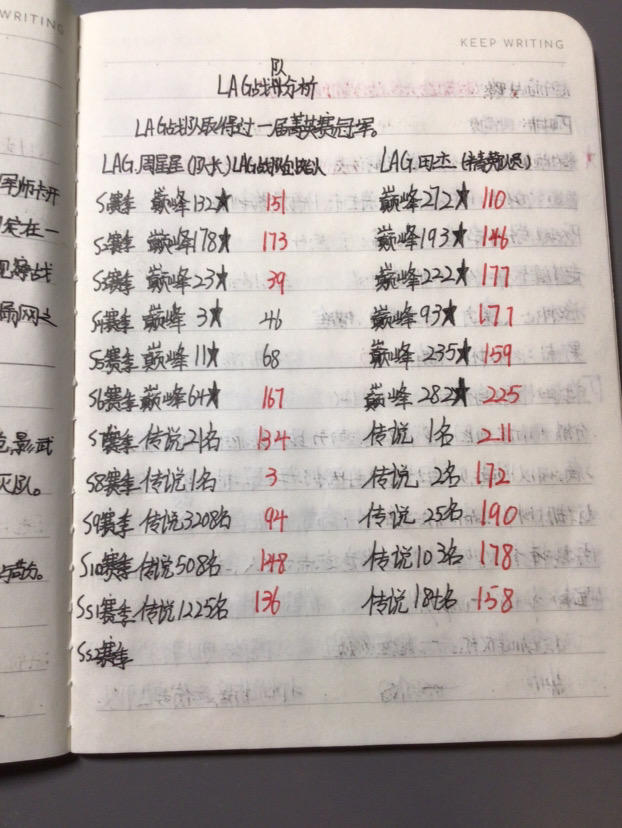 WRITING
KEEP WRITING
LAG战队分析
LAG战队取得过一届菁英赛冠军。
LAG.周星星(队长)LAG战队创始人 LAG.田杰(精英队员)
S1赛季 巅峰132★ 151 巅峰272★ 110
S2赛季 巅峰178★ 173 巅峰193★ 146
S3赛季 巅峰23★ 39 巅峰222★ 177
S4赛季 巅峰3★ 46 巅峰93★ 177
S5赛季 巅峰11★ 68 巅峰235★ 159
S6赛季 巅峰64★ 167 巅峰282★ 225
S7赛季 传说21名 134 传说1名 211
S8赛季 传说1名 3 传说2名 172
S9赛季 传说3208名 94 传说25名 190
S10赛季 传说508名 148 传说103名 178
SS1赛季 传说1225名 136 传说184名 158
SS2赛季